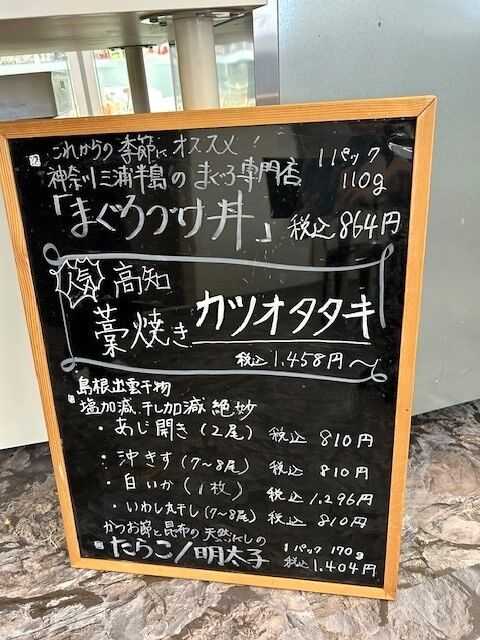 これからの季節にオススメ!
神奈川三浦半島のまぐろ専門店
1パック
110g
「まぐろづけ丼」 税込 864円
人気 高知
藁焼き カツオタタキ
税込 1,458円～
島根出雲干物
塩加減、干し加減 絶妙
・あじ開き(2尾) 税込 810円
・沖きす(7～8尾) 税込 810円
・白いか(1枚) 税込 1,296円
・いわし丸干し(7~8尾) 税込 810円
かつお節と昆布の天然だしの
たらこ/明太子
1パック 170g
税込 1,404円